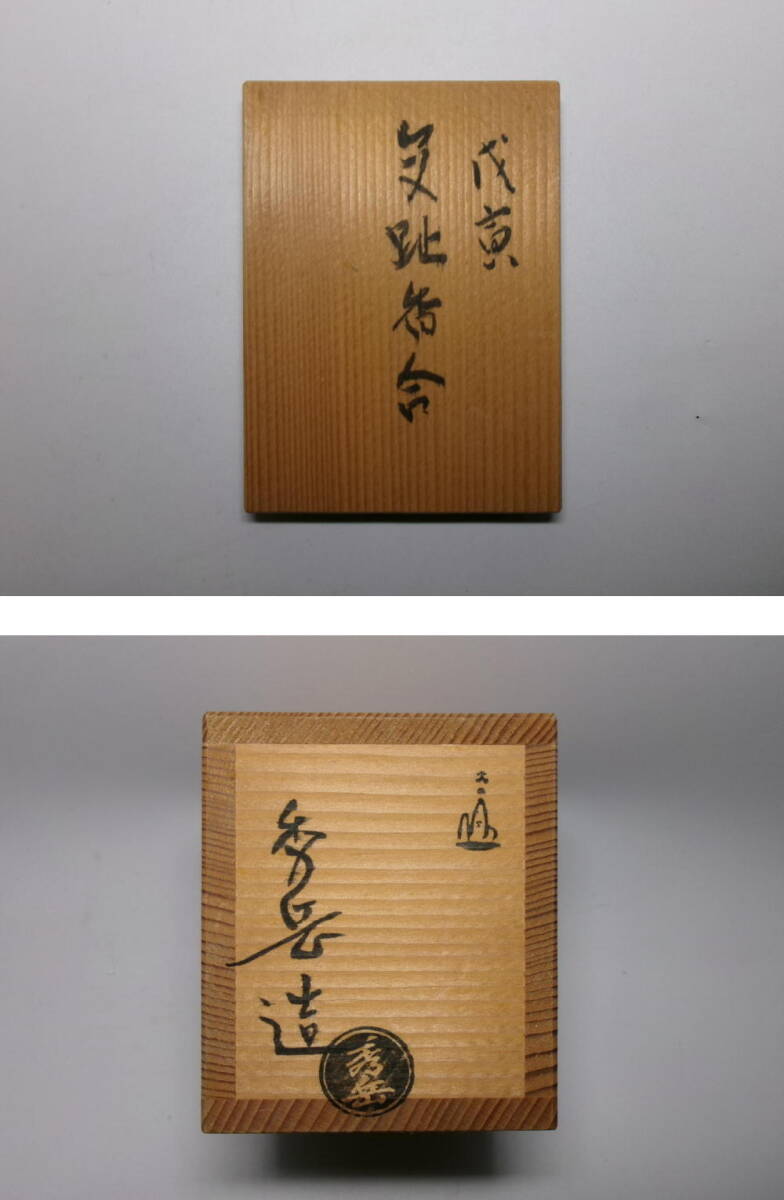 戊寅
交趾香合
秀岳造
秀岳